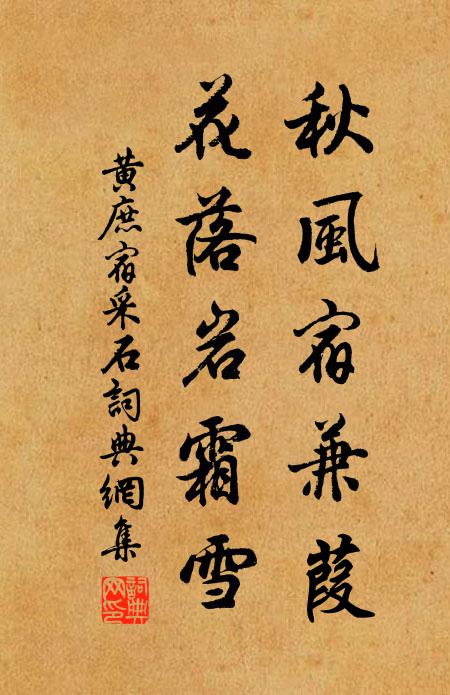 秋風宿兼葭
花落岩霜雪
黃庶宿采石詞典網集
詞典
网印